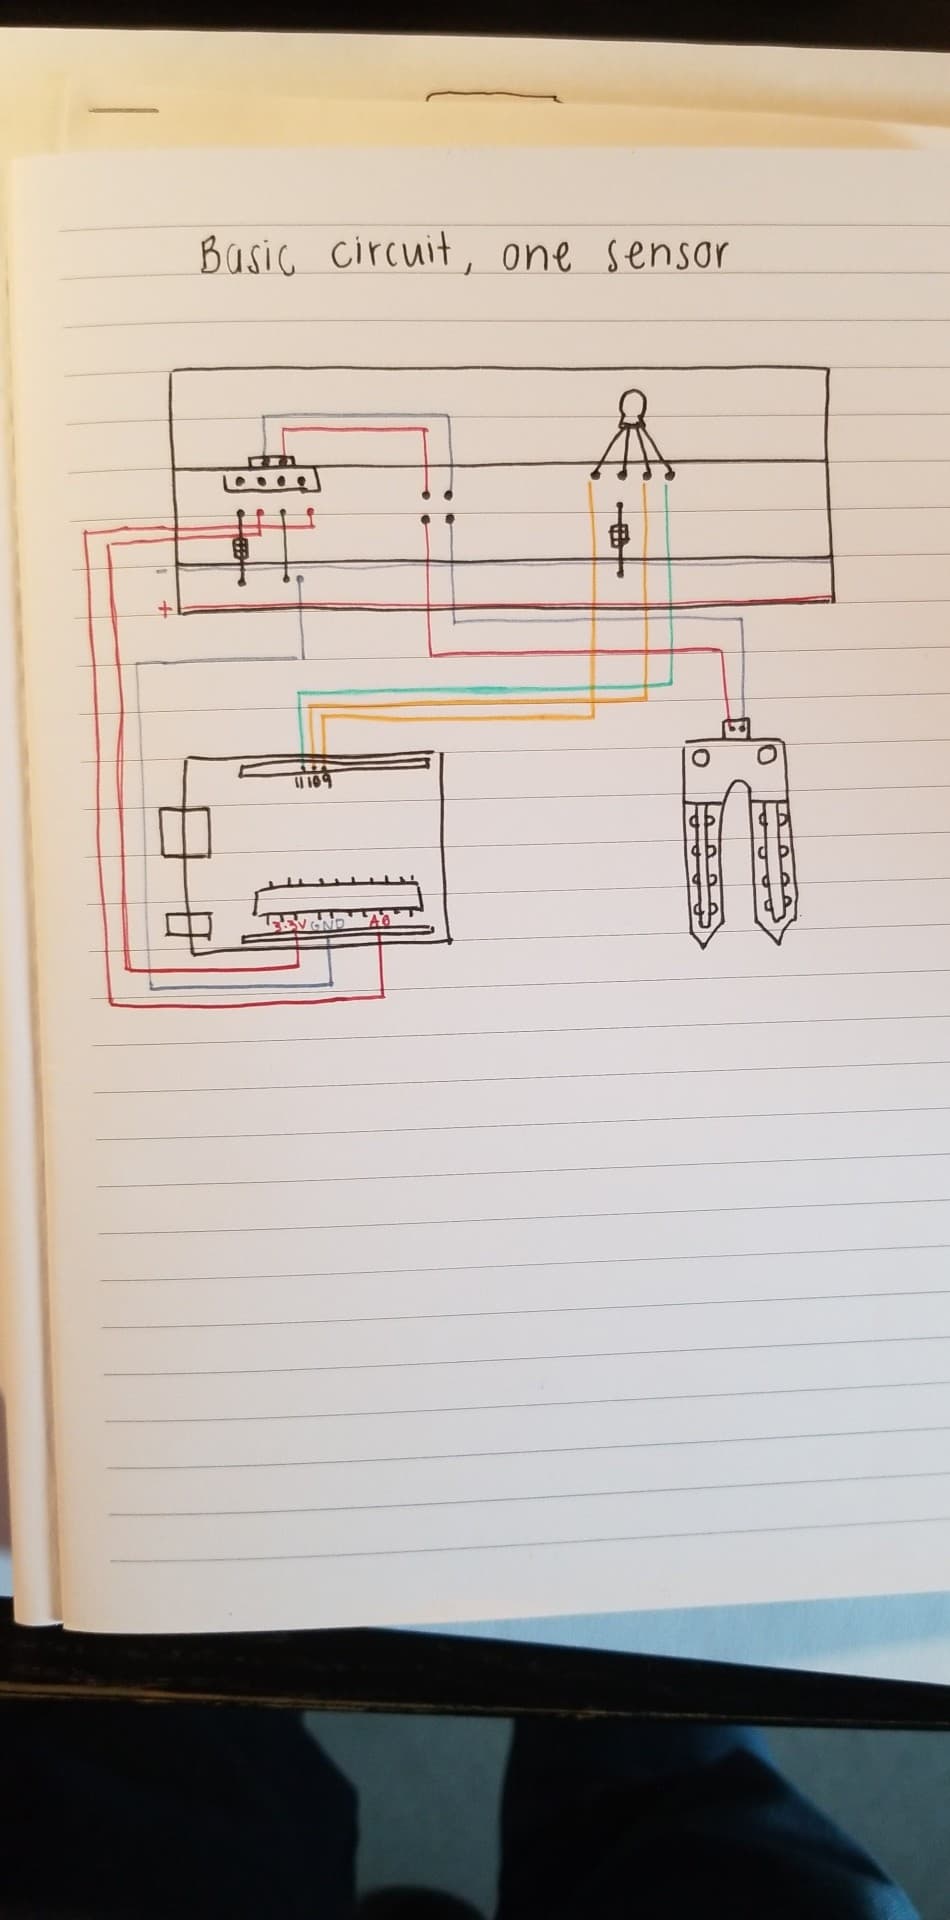 Basic circuit, one sensor
-
+
11 10 9
3.3V GND A0